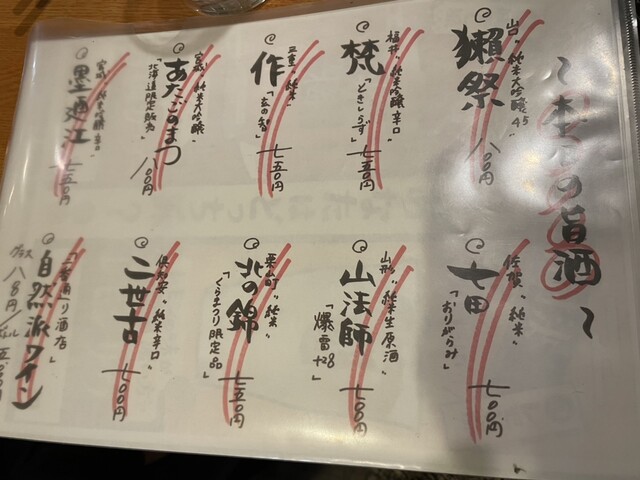 ～本日の旨酒～
山口〃純米大吟醸45〃
獺祭
八〇〇円
福井〃純米吟醸辛口〃
梵
「ときしらず」
七五〇円
三重〃純米〃
作
「玄の智」
七五〇円
宮城〃純米大吟醸〃
あたごのまつ
「北海道限定販売」
八〇〇円
宮城〃純米吟醸辛口〃
墨廼江
七五〇円
佐賀〃純米〃
七田
「おりがらみ」
七〇〇円
山形〃純米生原酒〃
山法師
「爆雷+28」
七〇〇円
栗山町〃純米〃
北の錦
「くらまつり限定品」
七五〇円
倶知安〃純米辛口〃
二世古
七〇〇円
酒店」
自然派ワイン
グラス